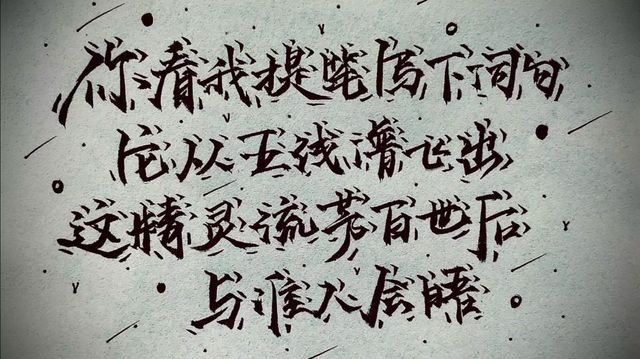 你看我提笔写下词句
它从五线谱飞出
这精灵流芳百世后
与谁人会晤